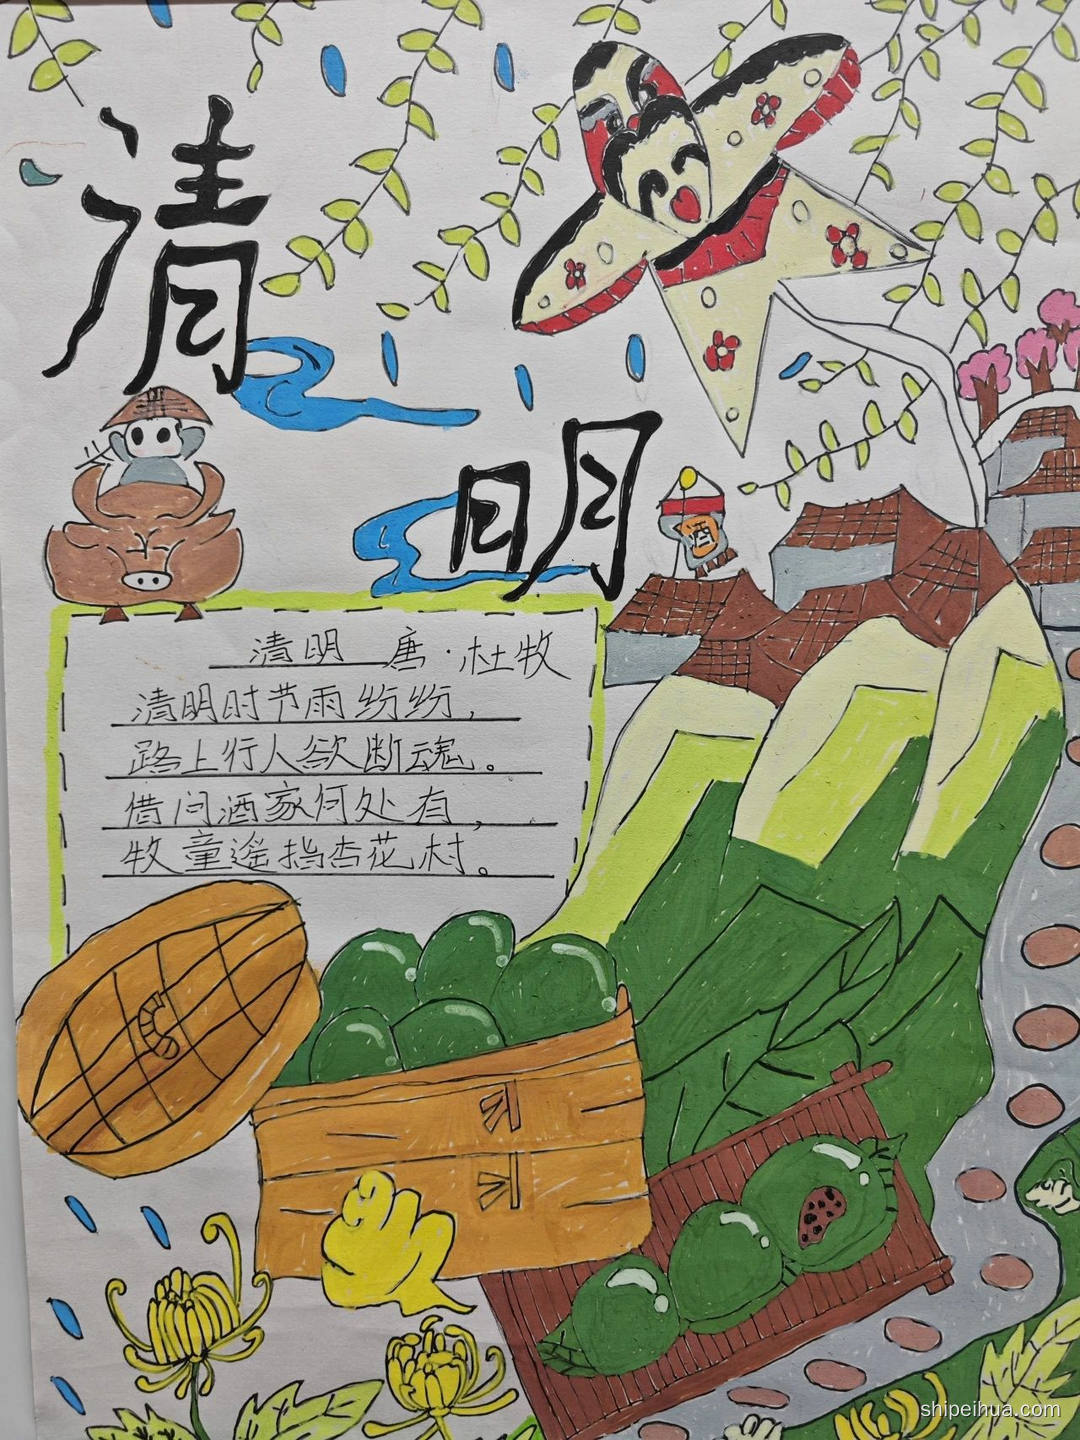 清
明
酒
清明 唐·杜牧
清明时节雨纷纷,
路上行人欲断魂。
借问酒家何处有,
牧童遥指杏花村。
shipeihua.com